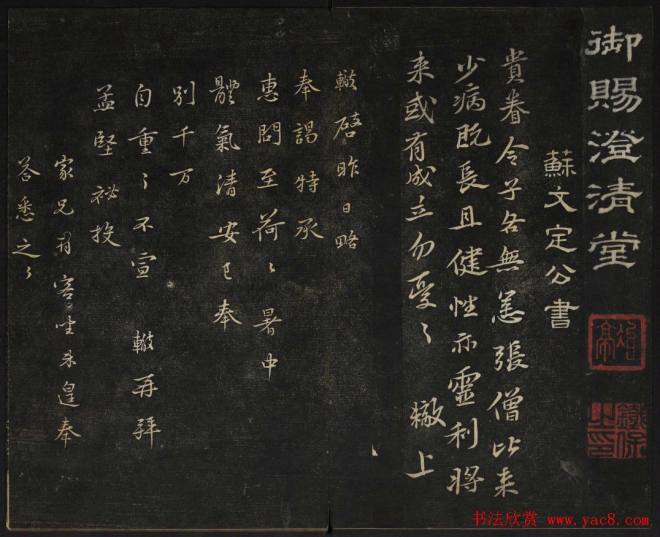 御賜澄清堂
蘇文定公書
貴眷令子各無恙張僧比来
少病既長且健性亦靈利将
来或有成立勿憂〻 轍上
轍啓昨日略
奉謁特承
惠問至荷〻暑中
體氣清安已奉
別千万
自重〻不宣 轍再拜
孟堅秘校
家兄有客坐未遑奉
答悉之〻
书法欣赏 www.yac8.com